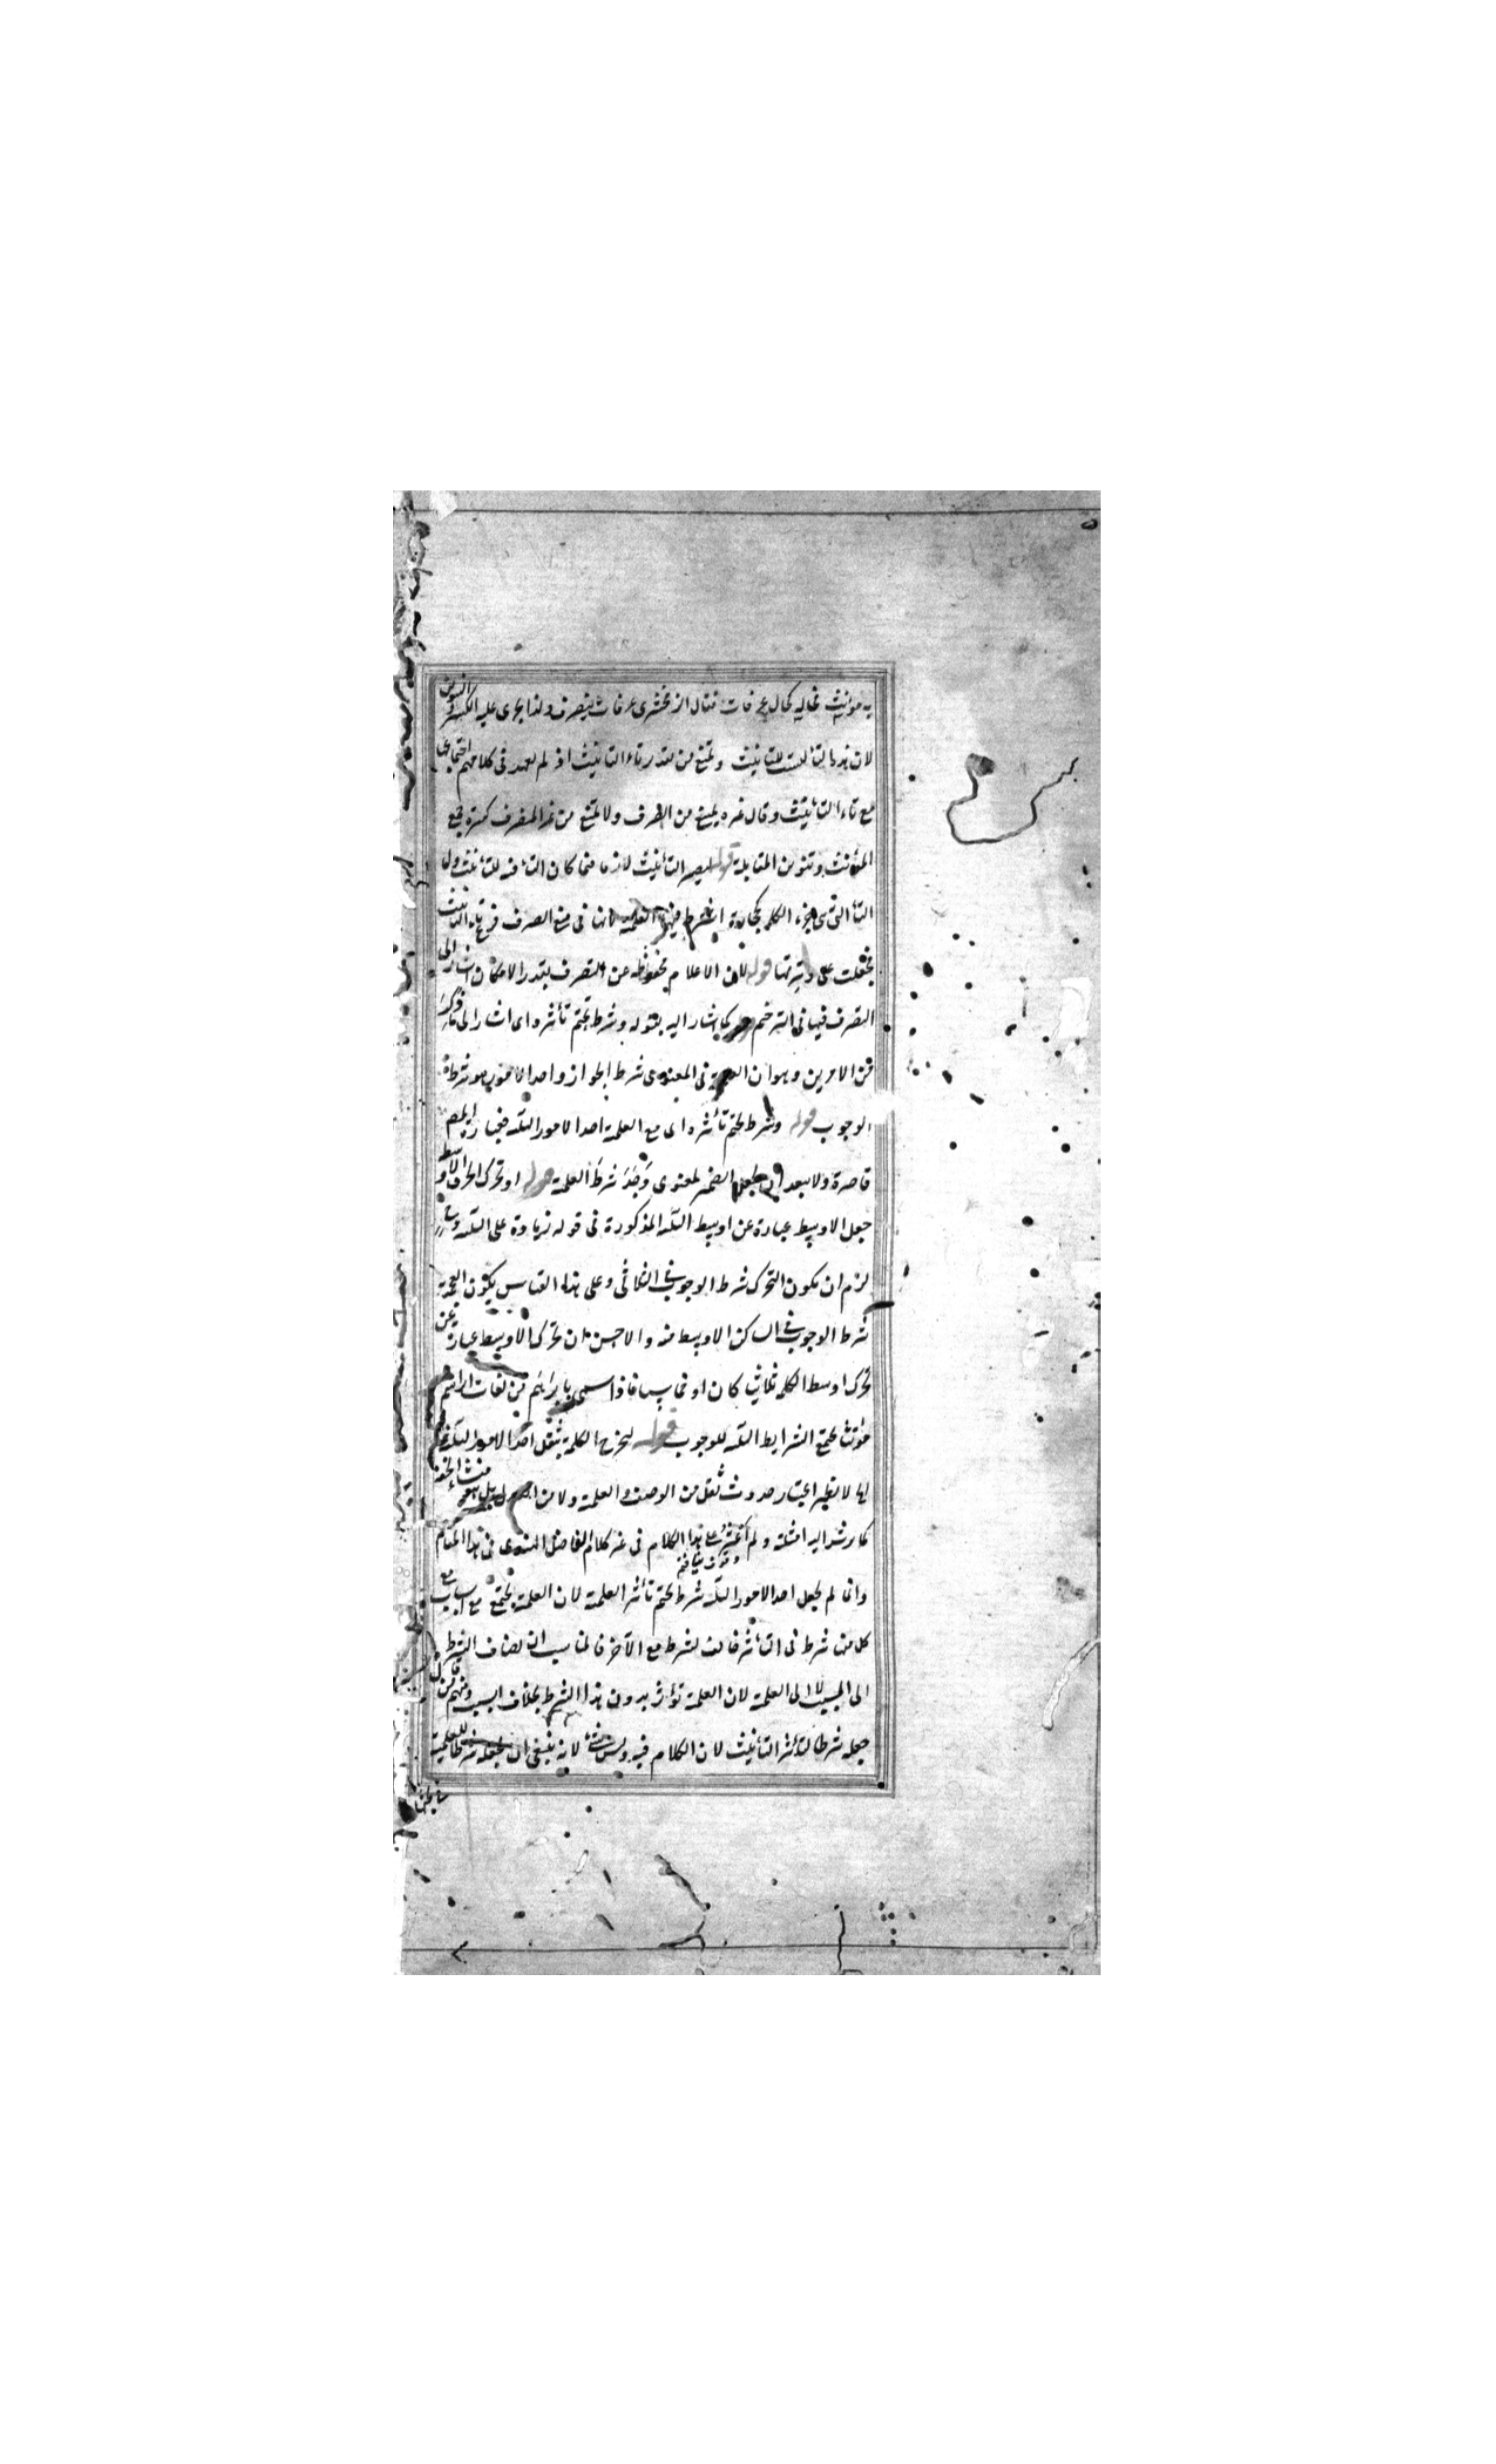 به مؤنث فحاله كحال عرفات فقال الزمخشرى عرفات ينصرف ولذا يجرى عليه الكسر والتنوين
لان هذه التا ليست للتانيث وتمنع من تقدير تاء التانيث اذ لم يعهد فى كلامهم اجتماعها
مع تاء التأنيث وقال غيره يمنع من الصرف ولا تمنع من غير المنصرف كسرة جمع
المؤنث وتنوين المقابلة قوله ليصير التأنيث لازما فما كان التأ فيه للتأنيث
التأ التى هى جزء الكلمة كحجارة اشترط فيها العلمية لانها فى منع الصرف فرع تاء التانيث
فجعلت على وتيرتها قوله لان الاعلام محفوظة عن التصرف بقدر الامكان اشار الى
التصرف فيها فى الترخيم كما اشار اليه بقوله وشرط تحتم تأثيره اى اشار الى ما ذكر
من الامرين وهو ان العلمية فى المعنوى شرط الجواز واحد الامور هو شرط
الوجوب قوله وشرط تحتم تأثيره اى مع العلمية احد الامور الثلثة فعبارة المصـ
قاصرة ولا يبعد ان يجعل الضمير لمعنوى وجد شرط العلمية قوله او تحرك الحرف الاوسط
جعل الاوسط عبارة عن اوسط الثلثة المذكورة فى قوله زيادة على الثلثة
لزم ان يكون التحرك شرط الوجوب فى الثلاثى وعلى هذا القياس يكون العجمة
شرط الوجوب فى الساكن الاوسط منه والاحسن ان تحرك الاوسط عبارة عن
تحرك اوسط الكلمة ثلاثيا كان او خماسيا فاذا سمى بابراهم من لغات ابراهيم
مؤنث يجمع الشرايط الثلثة للوجوب قوله ليخرج الكلمة بثقل احد الامور الثلثة
لها لا يظهر اعتبار حدوث ثقل من الوصف والعلمية ولا من
كما يرشد اليه امثلته ولم اعثر على هذا الكلام فى غير كلام الفاضل الهندى فى هذا المقام
وانما لم يجعل احد الامور الثلثة شرط تحتم تأثير العلمية لان العلمية تجتمع مع اسباب
كل من شرط فى التأثير فالشرط مع الآخر فالمناسب ان يضاف الشرط
الى السبب لا الى العلمية لان العلمية تؤثر بدون هذا الشرط بخلاف السبب ومنهم من
جعله شرطا لتأثير التأنيث لان الكلام فيه وليس بشئ لانه ينبغى ان يجعله شرطا للعلمية